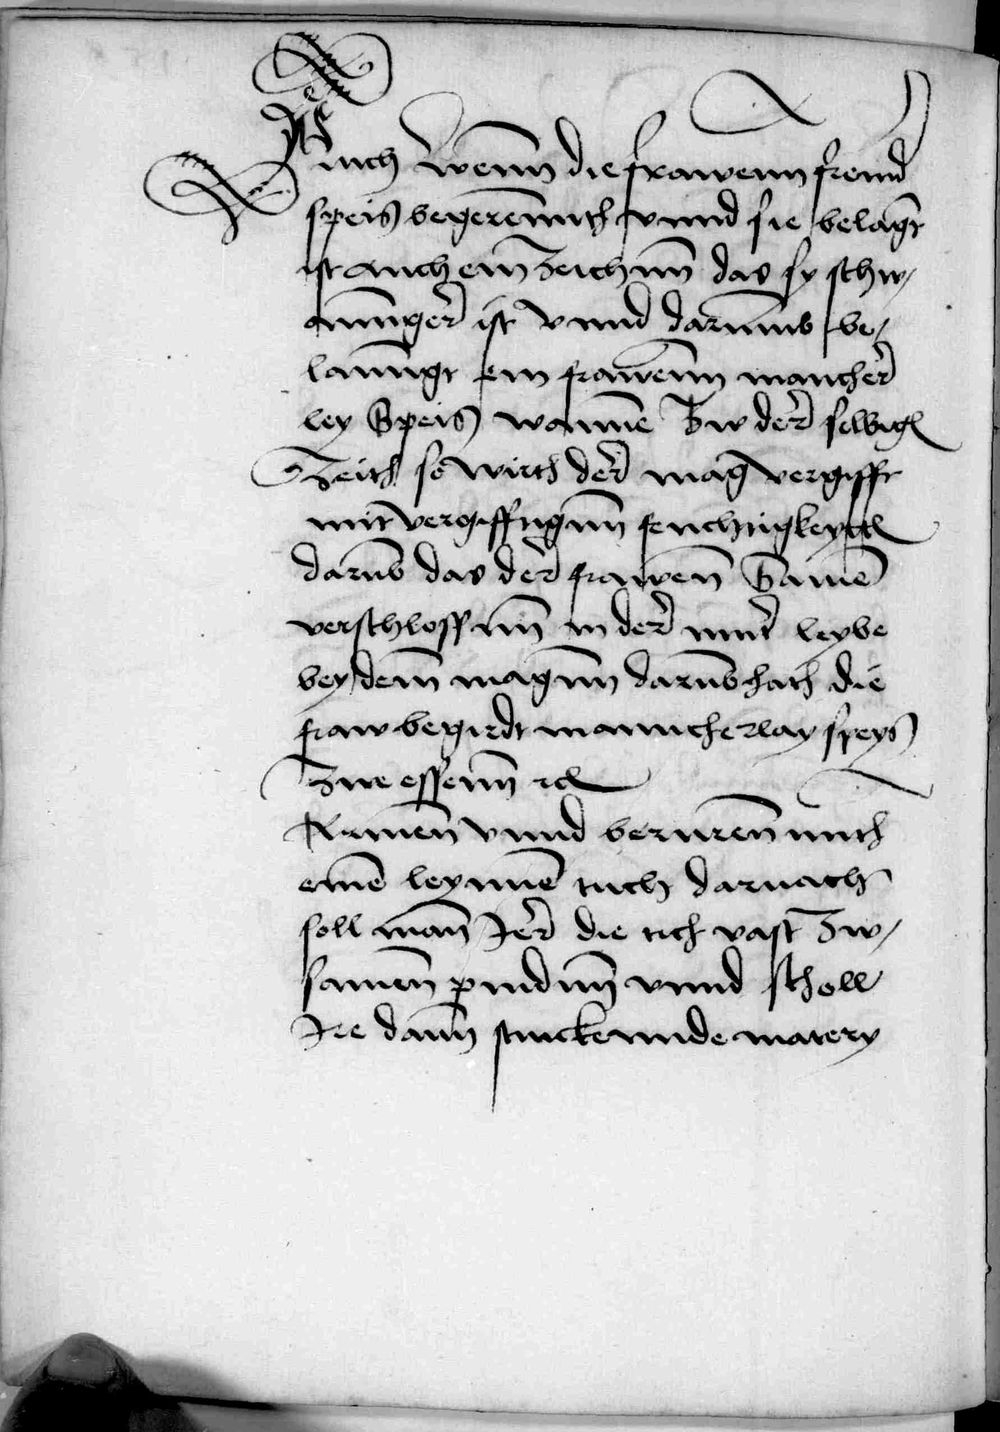 Auch wenn die frawenn fremd
speis begerennth vnnd sie belagt
ist auch ein Zeichnn das sy schw/
annger ist vnnd darumb be/
lanngt ein frawenn mancher
ley Speis wanne Zw der selbigen
Zeith so wirth der mag vergifft
mit vergifftignn feuchtigkeyten
darub das der frawen Samen
verschlossnn in der mut leybe
bey dem magnn darub hath die
fraw begirdt mannicherlay speys
Zwe essenn etc
Armen vnnd berurenn mith
eine leynne tuch darnach
soll man Jer die tich vast Zw/
samen pindnn vnnd scholl
Jre dann stinckennde matery